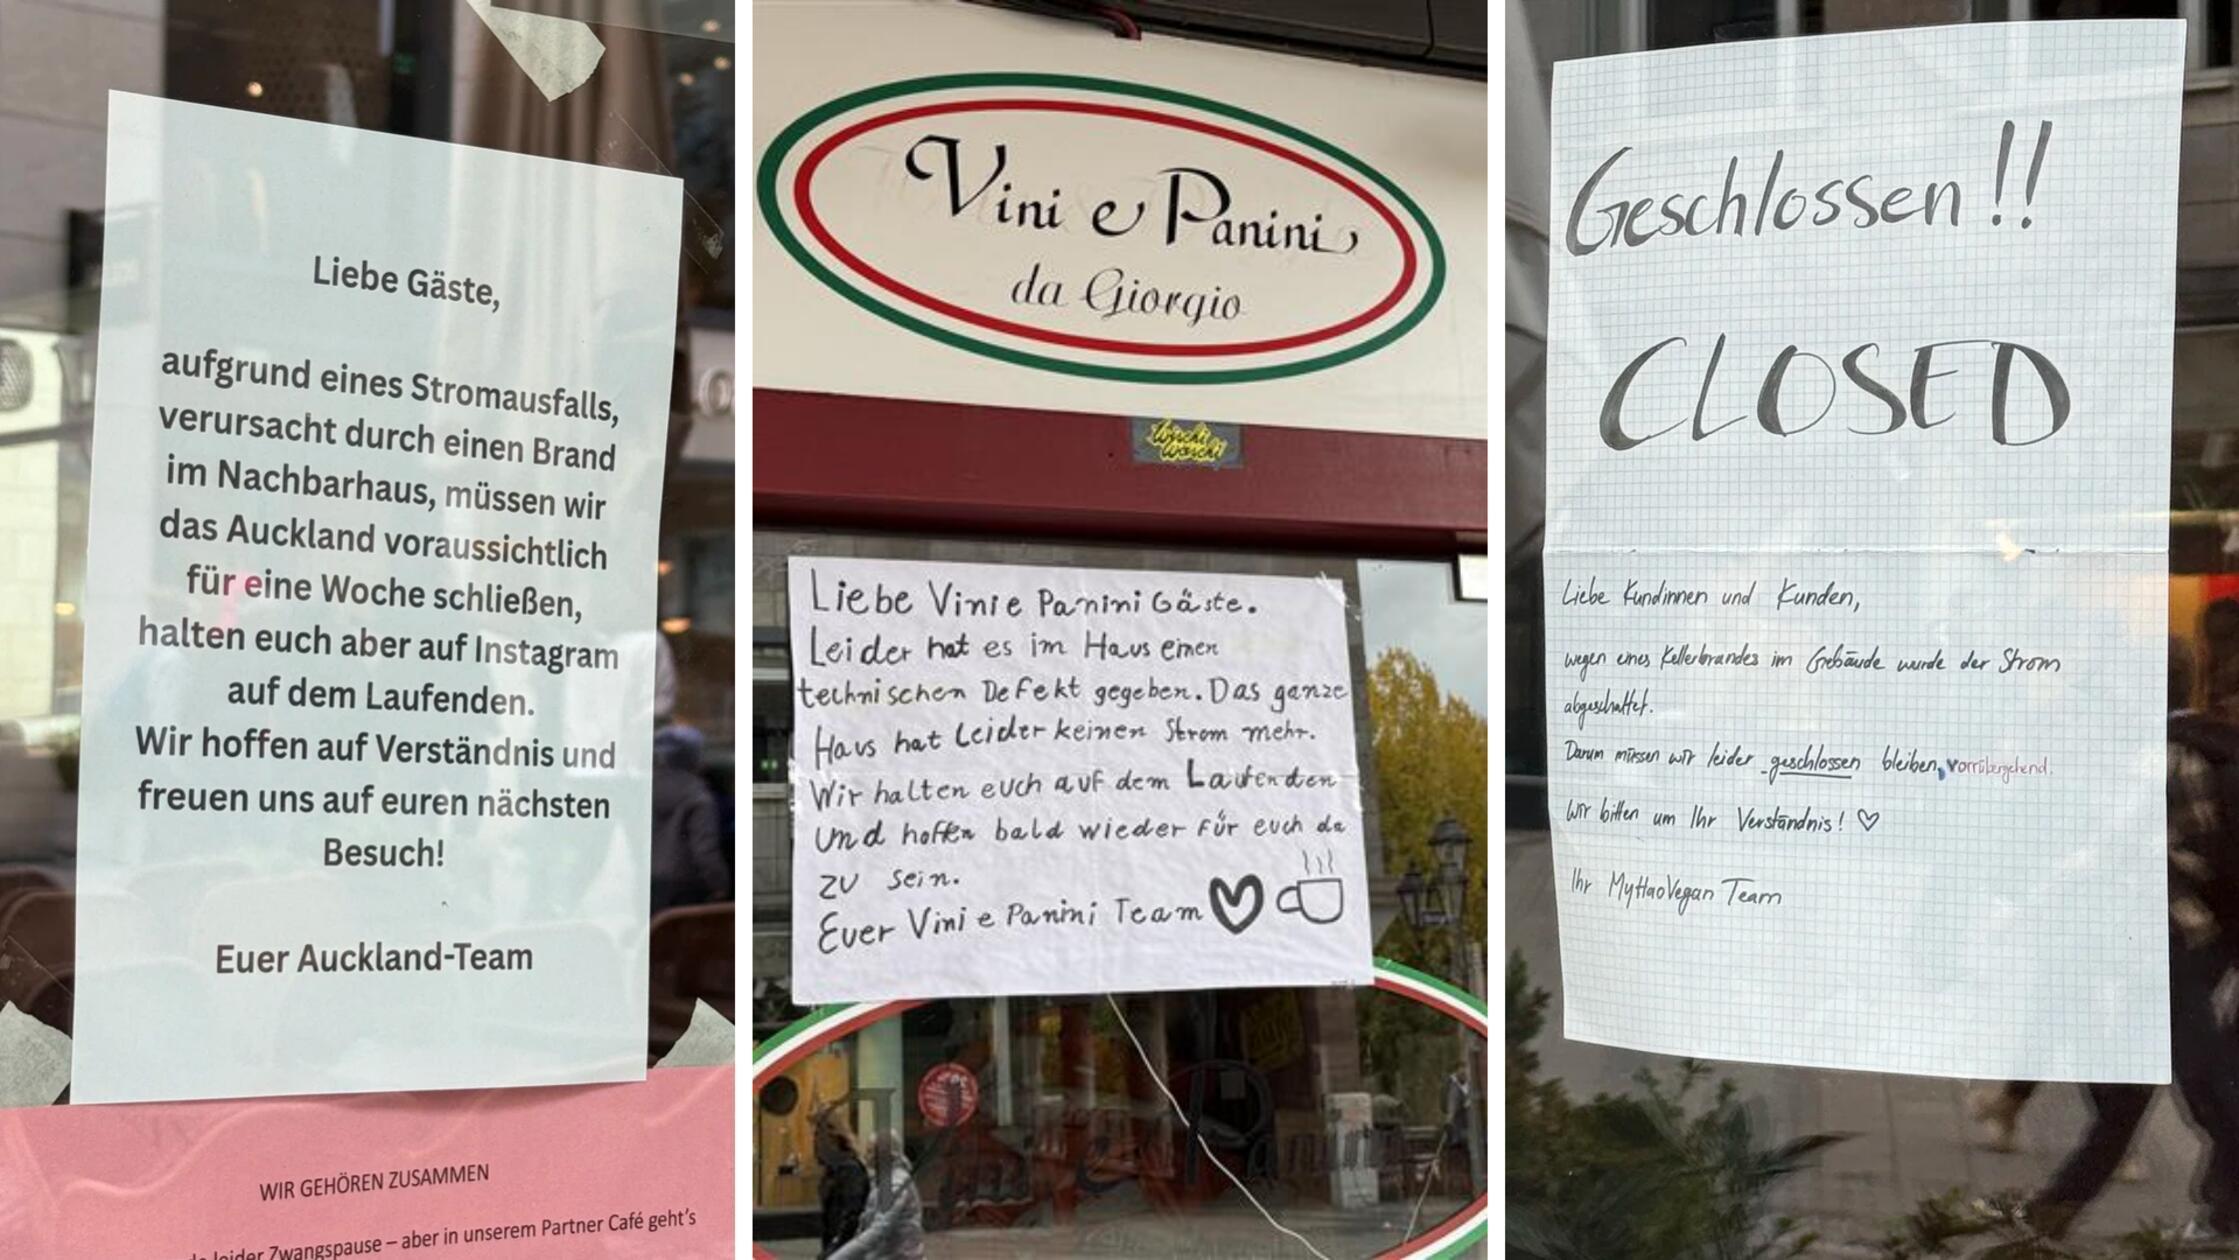 Liebe Gäste,
aufgrund eines Stromausfalls,
verursacht durch einen Brand
im Nachbarhaus, müssen wir
das Auckland voraussichtlich
für eine Woche schließen,
halten euch aber auf Instagram
auf dem Laufenden.
Wir hoffen auf Verständnis und
freuen uns auf euren nächsten
Besuch!
Euer Auckland-Team
WIR GEHÖREN ZUSAMMEN
leider Zwangspause – aber in unserem Partner Café geht's
Vini e Panini
da Giorgio
Liebe Vini e Panini Gäste.
Leider hat es im Haus einen
technischen Defekt gegeben. Das ganze
Haus hat leider keinen Strom mehr.
Wir halten euch auf dem Laufenden
und hoffen bald wieder für euch da
zu sein.
Euer Vini e Panini Team
Geschlossen!!
CLOSED
Liebe Kundinnen und Kunden,
wegen eines Kellerbrandes im Gebäude wurde der Strom
abgeschaltet.
Darum müssen wir leider geschlossen bleiben, vorrübergehend.
Wir bitten um Ihr Verständnis! ♡
Ihr MyHaoVegan Team